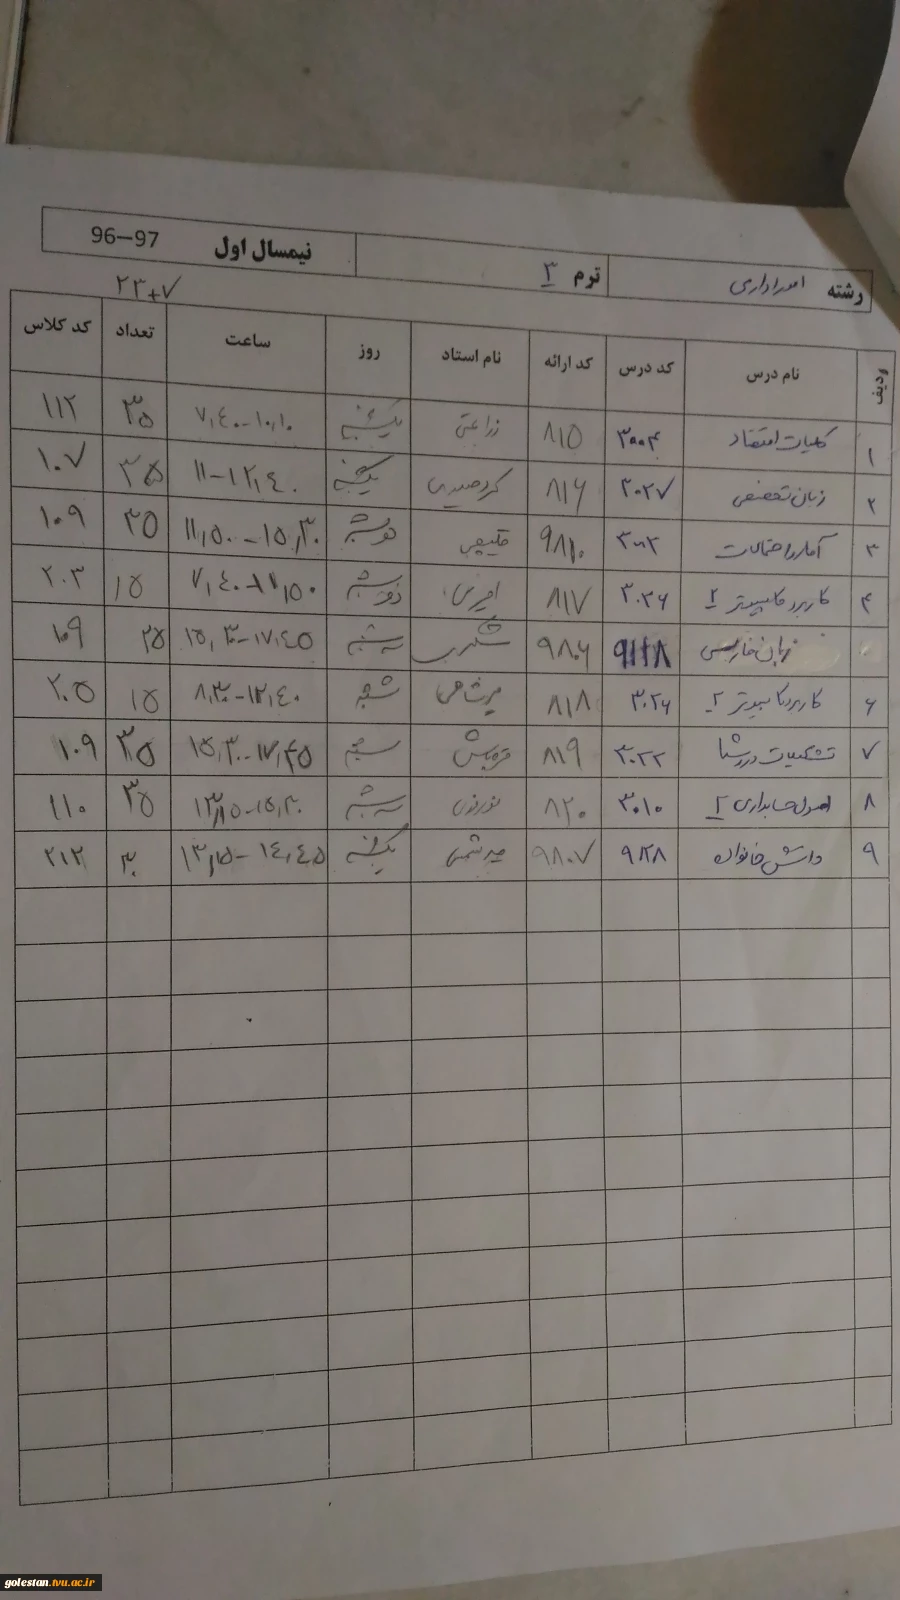 رشته امور اداری ترم ۳ نیمسال اول 96–97
۲۳+۷
ردیف نام درس کد درس کد ارائه نام استاد روز ساعت تعداد کد کلاس
۱ کلیات اقتصاد ۳۰۰۴ ۸۱۵ زراعتی یکشنبه ۷,۴۰-۱۰,۱۰ ۳۵ ۱۱۲
۲ زبان تخصصی ۳۰۲۷ ۸۱۶ یکشنبه ۱۱-۱۲,۴۰ ۳۵ ۱۰۷
۳ آمار و احتمالات ۹۸۱۰ دوشنبه ۱۱,۵۰-۱۵,۳۰ ۳۵ ۱۰۹
۴ کاربرد کامپیوتر ۲ ۳۰۲۶ ۸۱۷ دوشنبه ۱۵ ۲۰۳
زبان فارسی ۹۱۲۸ ۹۸۰۶ سه شنبه ۱۵,۳۰-۱۷,۴۵ ۲۵ ۱۰۹
۶ کاربرد کامپیوتر ۲ ۳۰۲۶ ۸۱۸ شنبه ۸,۳۰-۱۲,۴۰ ۱۵ ۲۰۵
۷ ۳۰۲۲ ۸۱۹ شنبه ۱۵,۳۰-۱۷,۴۵ ۳۵ ۱۰۹
۸ اصول حسابداری ۲ ۳۰۱۰ ۸۲۰ نوروزی سه شنبه ۱۳,۱۵-۱۵,۳۰ ۳۵ ۱۱۰
۹ دانش خانواده ۹۱۲۸ ۹۸۰۷ یکشنبه ۱۳,۱۵-۱۴,۴۵ ۳۰ ۲۱۲
golestan.tvu.ac.ir